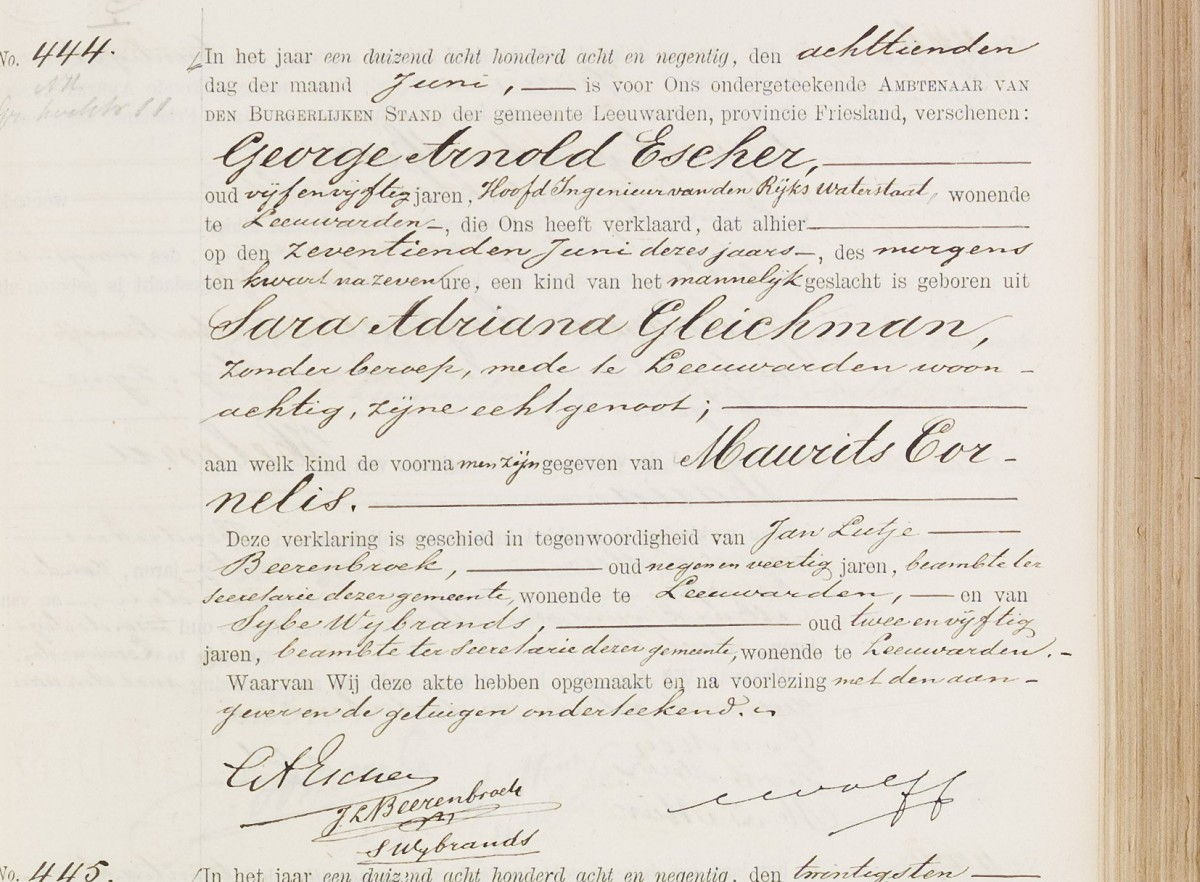 No. 444.
In het jaar een duizend acht honderd acht en negentig, den achttienden
dag der maand Juni, — is voor Ons ondergeteekende AMBTENAAR VAN
DEN BURGERLIJKEN STAND der gemeente Leeuwarden, provincie Friesland, verschenen:
George Arnold Escher,
oud vijf en vijftig jaren, Hoofd Ingenieur van den Rijks Waterstaat, wonende
te Leeuwarden —, die Ons heeft verklaard, dat alhier
op den zeventienden Juni dezes jaars —, des morgens
ten kwart na zeven ure, een kind van het mannelijk geslacht is geboren uit
Sara Adriana Gleichman,
zonder beroep, mede te Leeuwarden woon-
achtig, zijne echtgenoot;
aan welk kind de voornamen zijn gegeven van Maurits Cor-
nelis.
Deze verklaring is geschied in tegenwoordigheid van Jan Lutje
Beerenbroek, — oud negen en veertig jaren, beambte ter
secretarie dezer gemeente, wonende te Leeuwarden, — en van
Sybe Wybrands, — oud twee en vijftig
jaren, beambte ter secretarie dezer gemeente, wonende te Leeuwarden. —
Waarvan Wij deze akte hebben opgemaakt en na voorlezing met den aan-
gever en de getuigen onderteekend.
GA Escher
J L Beerenbroek
S Wybrands
Wolff
No. 445.
In het jaar een duizend acht honderd acht en negentig, den twintigsten